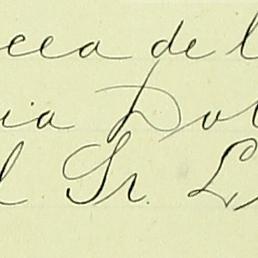 ecea de l
ia Dol
l Sr. L